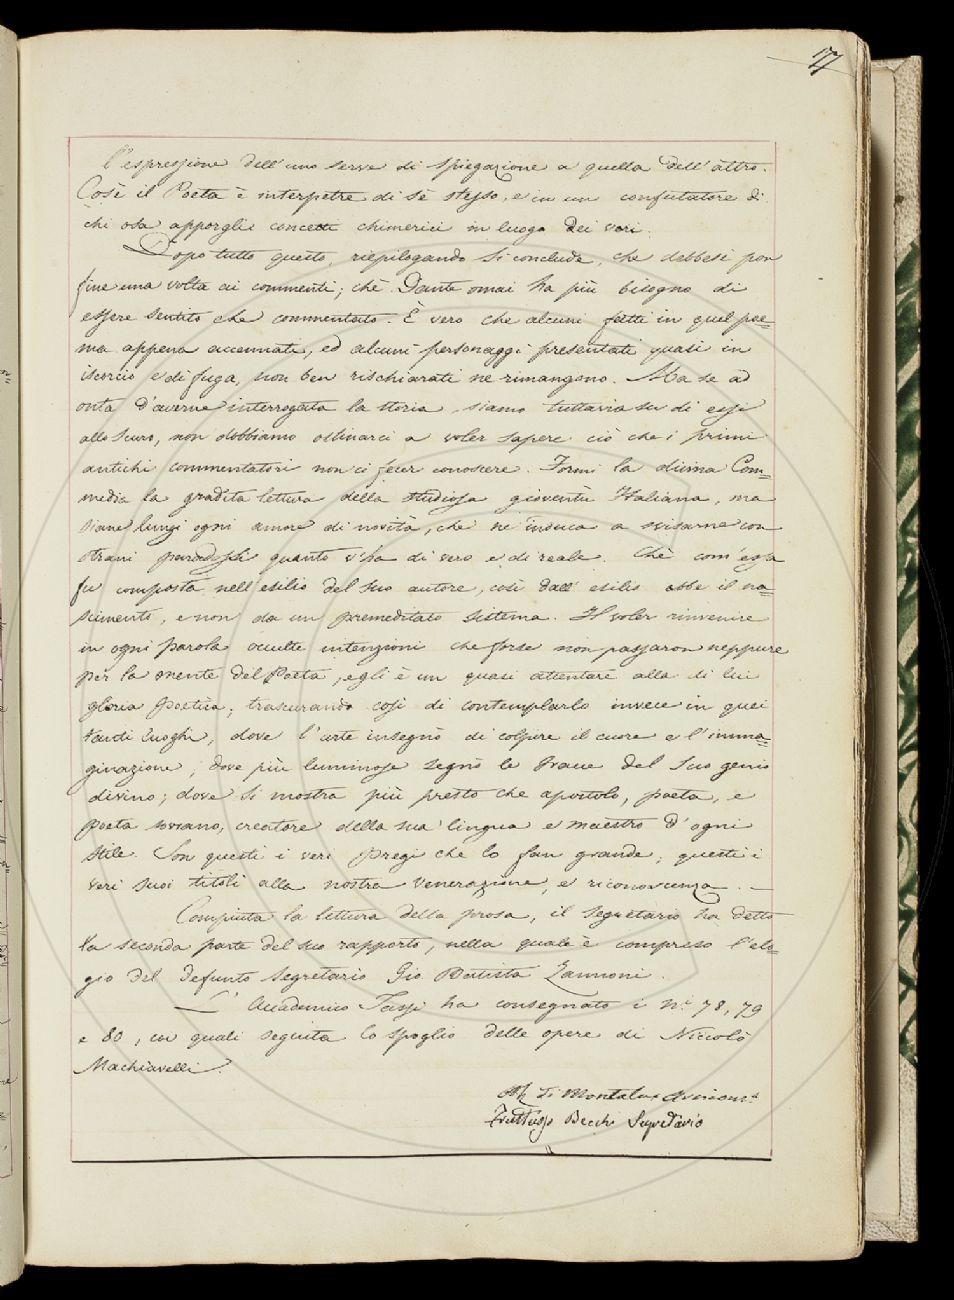 17
l'espressione dell'uno serve di spiegazione a quella dell'altro.
Così il Poeta è interpetre di sè stesso, e in un confutatore di
chi osa apporgli concetti chimerici in luogo dei veri.
Dopo tutto questo, riepilogando si conclude, che debbesi por
fine una volta ai commenti; chè Dante omai ha più bisogno di
essere sentito che commentato. È vero che alcuni fatti in quel poe=
ma appena accennati, ed alcuni personaggi presentati quasi in
iscorcio e di fuga, non ben rischiarati ne rimangono. Ma se ad
onta d'averne interrogata la storia, siamo tuttavia su di essi
allo scuro, non dobbiamo ostinarci a voler sapere ciò che i primi
antichi commentatori non ci fecer conoscere. Formi la divina Com=
media la gradita lettura della studiosa gioventù Italiana, ma
siane lungi ogni amore di novità, che ne induca a svisarne con
strani paradossi quanto v'ha di vero e di reale. Chè com'essa
fu composta nell'esilio del suo autore, così dall'esilio ebbe il na=
scimento, e non da un premeditato sistema. Il voler rinvenire
in ogni parola occulte intenzioni che forse non passaron neppure
per la mente del Poeta, egli è un quasi attentare alla di lui
gloria poetica; trascurando così di contemplarlo invece in quei
tanti luoghi, dove l'arte insegnò di colpire il cuore e l'imma=
ginazione; dove più luminose segnò le tracce del suo genio
divino; dove si mostra più presto che apostolo, poeta, e
poeta sovrano, creatore della sua lingua e maestro d'ogni
stile. Son questi i veri pregi che lo fan grande; questi i
veri suoi titoli alla nostra venerazione, e riconoscenza. —
Compiuta la lettura della prosa, il segretario ha detto
la seconda parte del suo rapporto, nella quale è compreso l'elo=
gio del defunto segretario Gio. Battista Zannoni.
L'Accademico Tassi ha consegnato i n.i 78, 79
e 80, coi quali seguita lo spoglio delle opere di Niccolò
Machiavelli.
di Montalvo
Fruttuoso Becchi Segretario